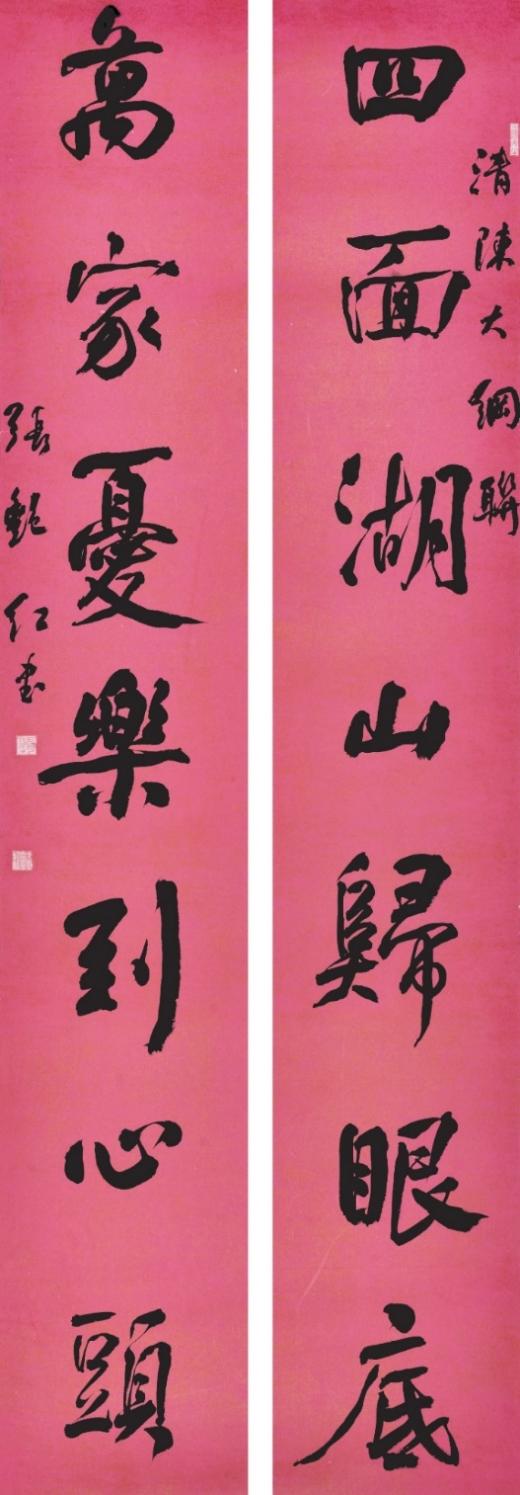 清陳大綱聯
四面湖山歸眼底
萬家憂樂到心頭
張艶紅書